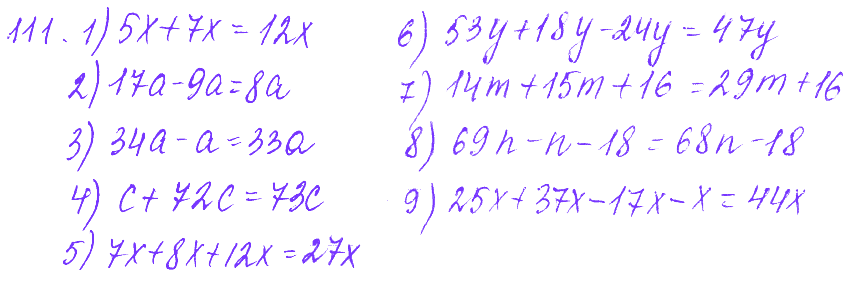 111. 1) 5x+7x=12x
2) 17a-9a=8a
3) 34a-a=33a
4) c+72c=73c
5) 7x+8x+12x=27x
6) 53y+18y-24y=47y
7) 14m+15m+16=29m+16
8) 69n-n-18=68n-18
9) 25x+37x-17x-x=44x